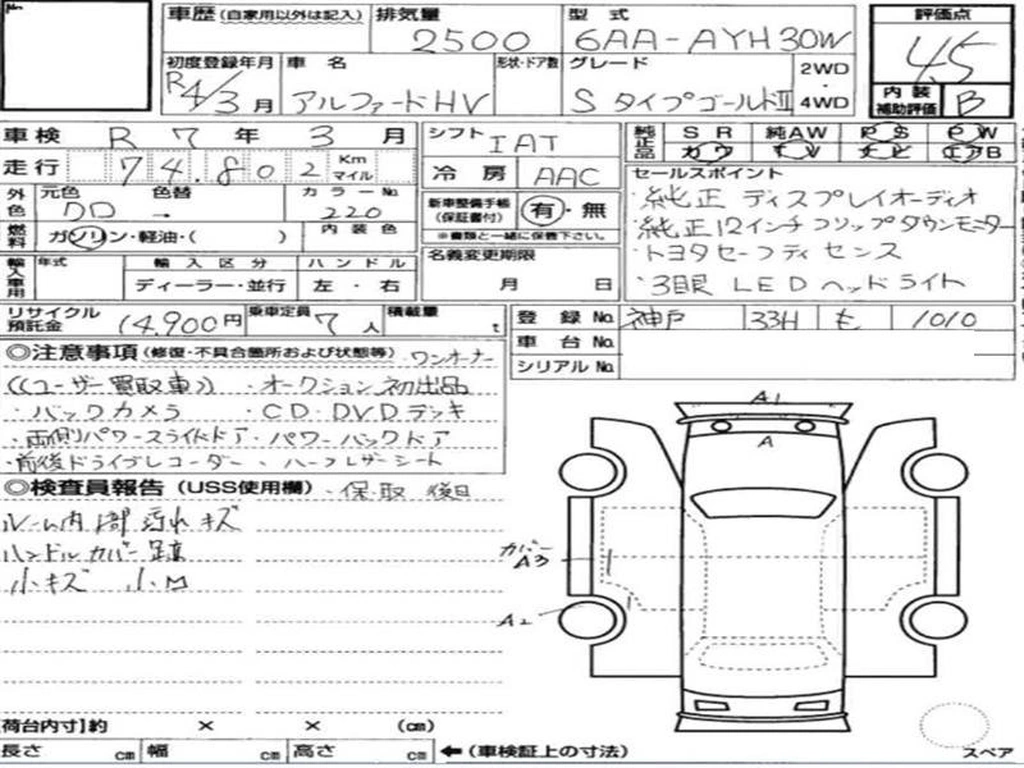 車歴 (自家用以外は記入) 排気量 2500 型式 6AA-AYH30W 評価点 4.5
初度登録年月 R4/3月 車名 アルファードHV 形状・ドア数 グレード SタイプゴールドII 2WD・4WD 内装補助評価 B
車検 R 7年 3月 シフト IAT 純正品 SR 純AW PS PW
カワ TV ナビ エアB
走行 74.802 Km マイル 冷房 AAC セールスポイント
外色 元色 色替 カラーNo. 220 内装色 新車整備手帳 (保証書付) 有・無
※書類と一緒に保管下さい。
・純正 ディスプレイオーディオ
・純正12インチフリップダウンモニター
・トヨタセーフティセンス
・3眼 LEDヘッドライト
燃料 ガソリン・軽油・( )
輸入車用 年式 輸入区分 ハンドル 名義変更期限
ディーラー・並行 左・右 月 日
リサイクル預託金 14,900円 乗車定員 7人 積載量 t 登録No. 神戸 33H も 1010
車台No.
シリアルNo.
◎注意事項 (修復・不具合箇所および状態等) ワンオーナー
((ユーザー買取車)) ・オークション初出品
・バックカメラ ・CD・DVDデッキ
・両側パワースライドドア・パワーバックドア
・前後ドライブレコーダー、ハーフレザーシート
◎検査員報告 (USS使用欄) ・保・取 後日
ルーム内 1部 汚れ キズ
ハンドル カバー跡
小キズ 小凹
A1
A
カバー
A3
A2
[荷台内寸]約 × × (cm)
長さ cm 幅 cm 高さ cm ←(車検証上の寸法)
スペア